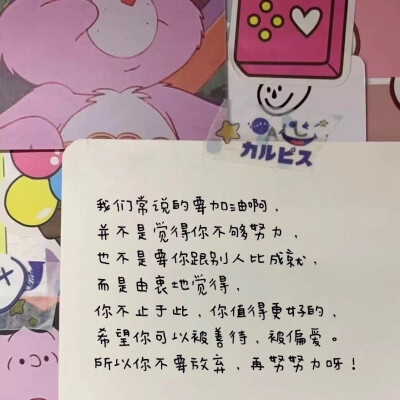 カルピス
我们常说的要加油啊，
并不是觉得你不够努力，
也不是要你跟别人比成就，
而是由衷地觉得，
你不止于此，你值得更好的，
希望你可以被善待，被偏爱。
所以你不要放弃，再努努力呀！